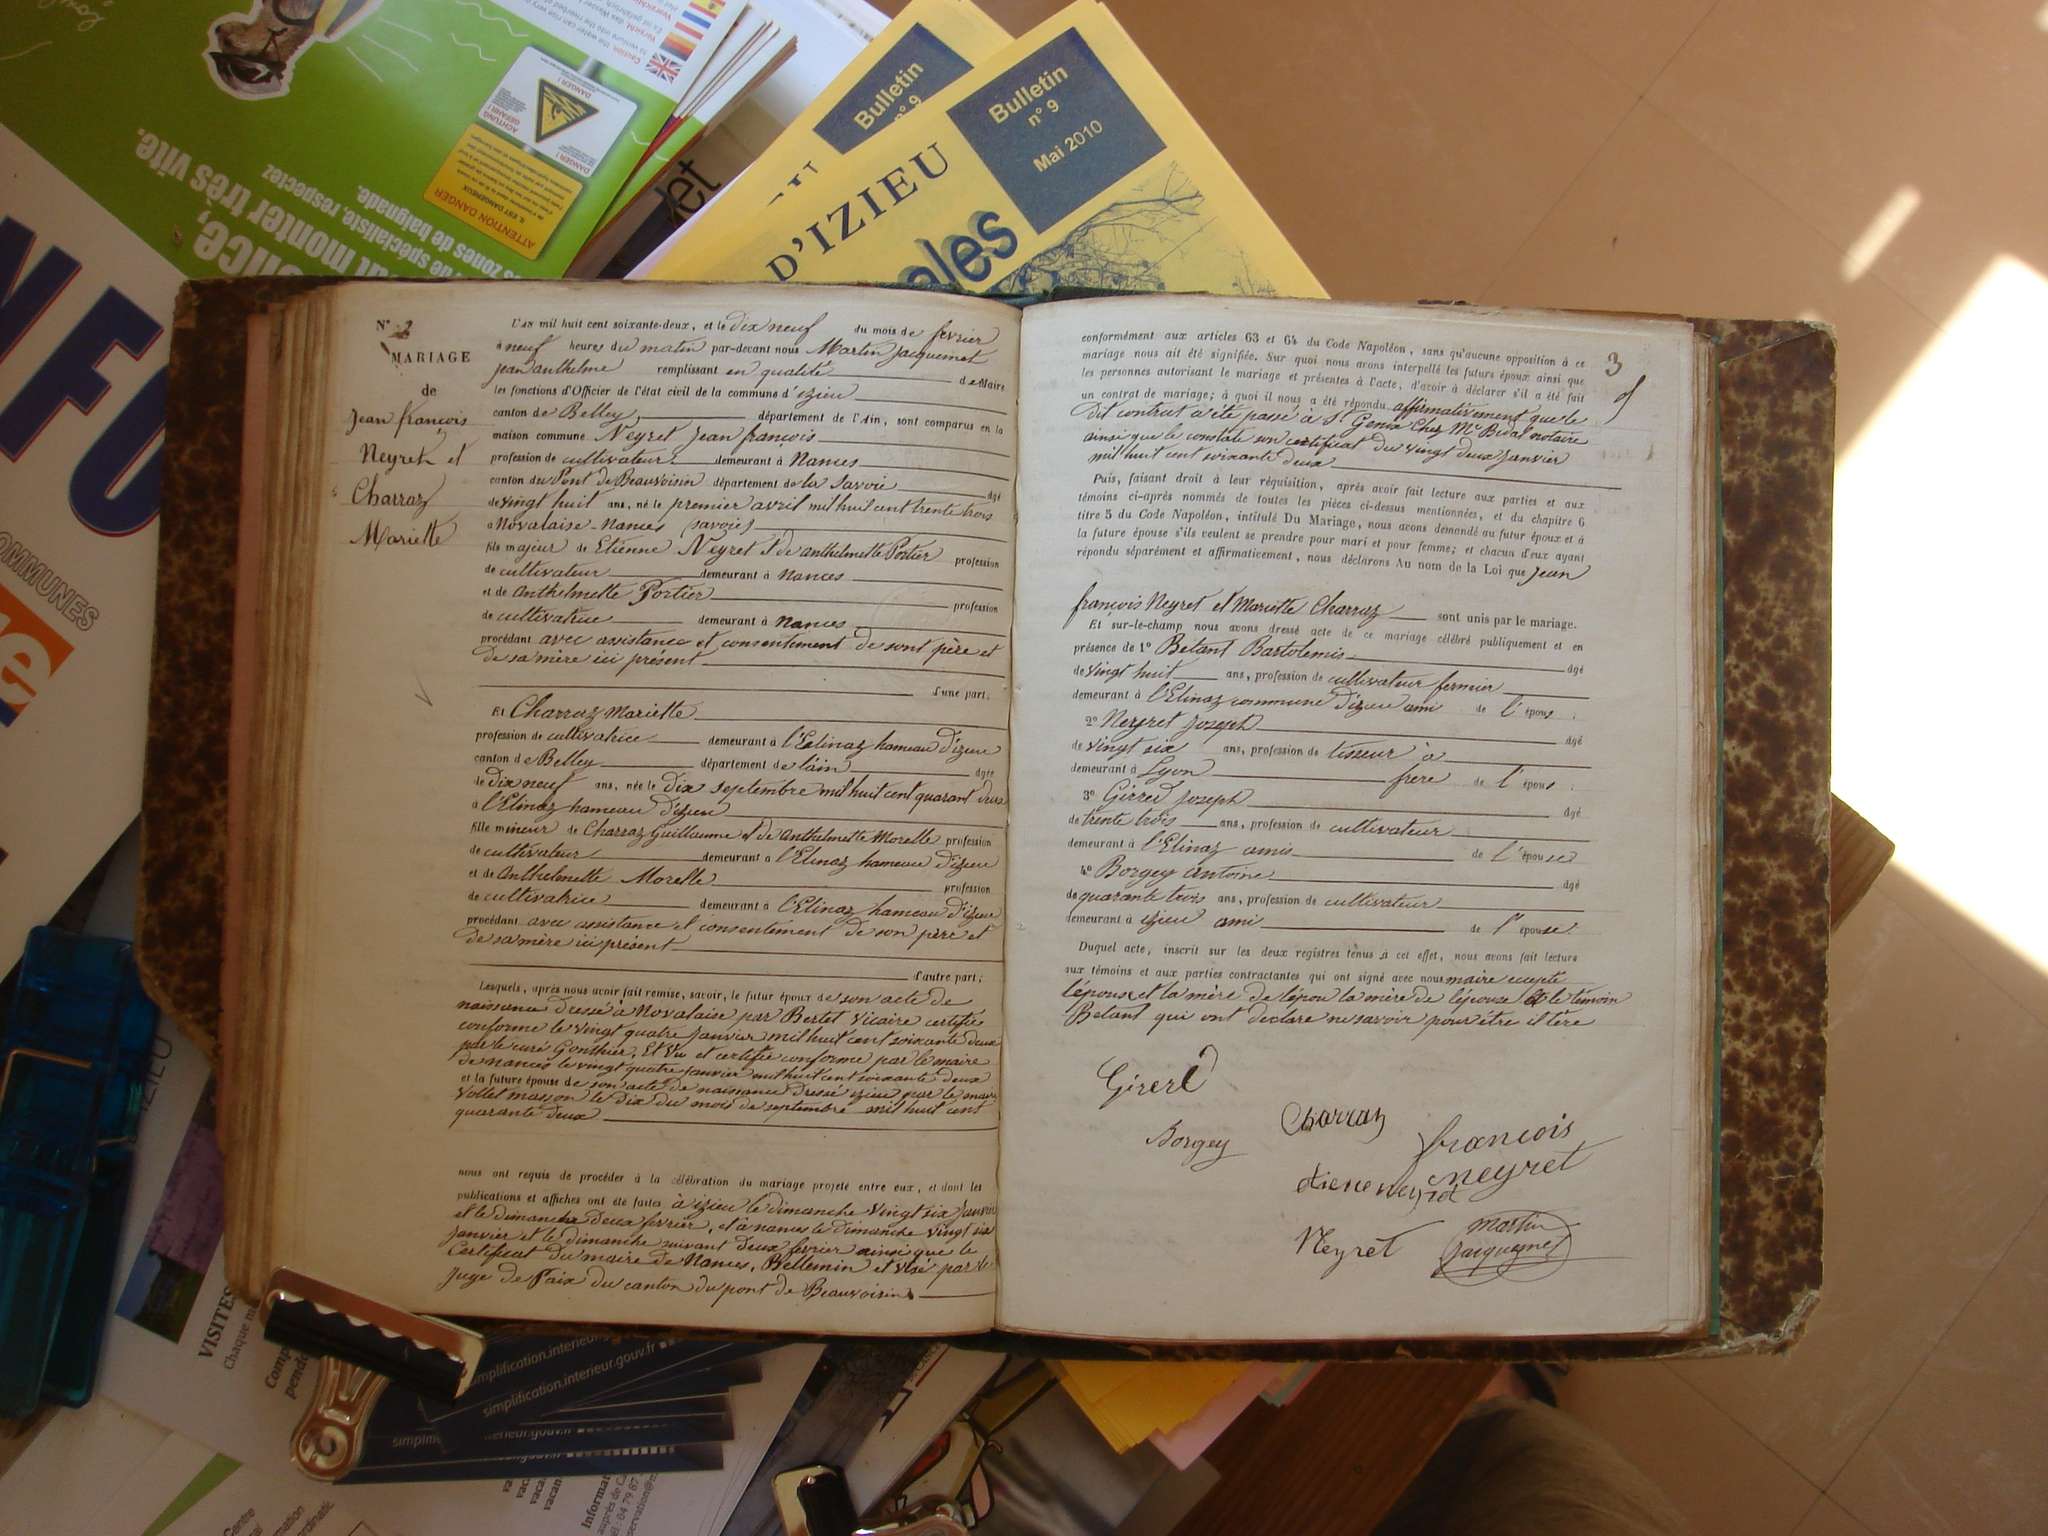 Bulletin
n° 9
Bulletin
n° 9
Mai 2010
D'IZIEU
ales
ATTENTION DANGER
DANGER !
ACHTUNG
GEFAHR !
monter très vite.
de spécialiste, respectez
zones de baignade.
N° 2
MARIAGE
de
Jean françois
Neyret et
Charraz
Mariette
L'an mil huit cent soixante-deux, et le dix neuf du mois de fevrier
à neuf heures du matin par-devant nous Martin Jacquemet
jean anthelme remplissant en qualité de Maire
les fonctions d'Officier de l'état civil de la commune d'izieu
canton de Belley département de l'Ain, sont comparus en la
maison commune Neyret Jean françois
profession de cultivateur demeurant à Nances
canton du Pont de Beauvoisin département de la Savoie âgé
de vingt huit ans, né le premier avril mil huit cent trente trois
a Novalaise-Nances (savoie)
fils majeur de Etienne Neyret & de anthelmette Portier profession
de cultivateur demeurant à Nances
et de Anthelmette Portier profession
de cultivatrice demeurant à Nances
procédant avec assistance et consentement de sont père et
de sa mère ici présent
d'une part;
Et Charraz Mariette
profession de cultivatrice demeurant à l'Elinaz hameau d'izieu
canton de Belley département de l'ain âgée
de dix neuf ans, née le dix septembre mil huit cent quarant deux
à l'Elinaz hameau d'izieu
fille mineur de Charraz Guillaume et de Anthelmette Morelle profession
de cultivateur demeurant à l'Elinaz hameau d'izieu
et de Anthelmette Morelle profession
de cultivatrice demeurant à l'Elinaz hameau d'izieu
procédant avec assistance et consentement de son père et
de sa mère ici présent
d'autre part;
Lesquels, après nous avoir fait remise, savoir, le futur époux de son acte de
naissance dressé à Novalaise par Bertet Vicaire certifié
conforme le vingt quatre janvier mil huit cent soixante deux
par le curé Gonthier, Et Vu et certifié conforme par le maire
de nances le vingt quatre janvier mil huit cent soixante deux
et la future épouse de son acte de naissance dressé izieu par le maire
Vollet masson le dix du mois de septembre mil huit cent
quarante deux
nous ont requis de procéder à la célébration du mariage projeté entre eux, et dont les
publications et affiches ont été faites à izieu le dimanche vingt six janvier
et le dimanche deux fevrier, et à nances le dimanche vingt six
janvier et le dimanche suivant deux fevrier ainsi que le
Certificat du maire de Nances, Bellemin et visé par le
Juge de Paix du canton du pont de Beauvoisin
3
conformément aux articles 63 et 64 du Code Napoléon, sans qu'aucune opposition à ce
mariage nous ait été signifiée. Sur quoi nous avons interpellé les futurs époux ainsi que
les personnes autorisant le mariage et présentes à l'acte, d'avoir à déclarer s'il a été fait
un contrat de mariage; à quoi il nous a été répondu affirmativement que le
dit contrat a été passé à St Genix Chez Me Bidal notaire
ainsi que le constate son certificat du vingt deux janvier
mil huit cent soixante deux
Puis, faisant droit à leur réquisition, après avoir fait lecture aux parties et aux
témoins ci-après nommés de toutes les pièces ci-dessus mentionnées, et du chapitre 6
titre 5 du Code Napoléon, intitulé Du Mariage, nous avons demandé au futur époux et à
la future épouse s'ils veulent se prendre pour mari et pour femme; et chacun d'eux ayant
répondu séparément et affirmativement, nous déclarons Au nom de la Loi que Jean
françois Neyret et Mariette Charraz sont unis par le mariage.
Et sur-le-champ nous avons dressé acte de ce mariage célébré publiquement et en
présence de 1° Bétant Bartolemis âgé
de vingt huit ans, profession de cultivateur fermier
demeurant à l'Elinaz commune d'izieu ami de l'époux;
2° Neyret Joseph âgé
de vingt six ans, profession de tisseur à
demeurant à Lyon frere de l'époux;
3° Girerd Joseph âgé
de trente trois ans, profession de cultivateur
demeurant à l'Elinaz amis de l'épouse
4° Borgey Antoine âgé
de quarante trois ans, profession de cultivateur
demeurant à izieu ami de l'épouse.
Duquel acte, inscrit sur les deux registres tenus à cet effet, nous avons fait lecture
aux témoins et aux parties contractantes qui ont signé avec nous maire ecepte
l'épouse et la mère de l'épou la mère de l'épouse et le témoin
Betant qui ont declare ne savoir pour être iltère
Girerd
Charraz
Borgey
francois
neyret
etiene neyret
Neyret
Martin
Jacquemet
OMMUNES
IZIEU
VISITES
simplification.interieur.gouv.fr
simplification.interieur.gouv.fr